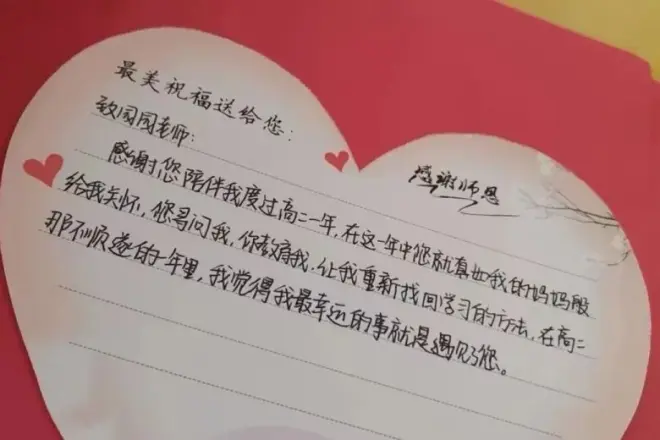 最美祝福送给您：
致园园老师：
感谢师恩
感谢您陪伴我度过高二一年，在这一年中您就真如我的妈妈般
给我关怀，您寻问我，你教育我，让我重新找回学习的方法，在高二
那不顺遂的一年里，我觉得我最幸运的事就是遇见了您。